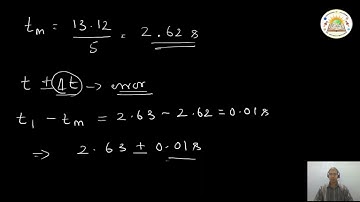 t_m = 13.12/5 = 2.62 s
t ± Δt → error
t₁ - t_m = 2.63 - 2.62 = 0.01 s
⇒ 2.63 ± 0.01 s